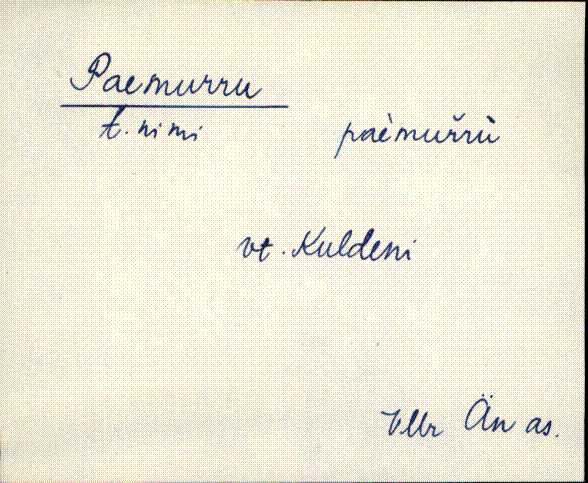 Paemurru
t. nimi paèmuřrù
vt. Kuldeni
VMr Än as.